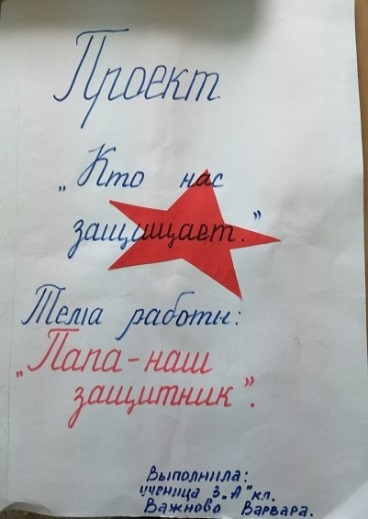 Проект
„Кто нас
защищает."
Тема работы:
„Папа-наш
защитник".
Выполнила:
ученица 3„А" кл.
Важново Варвара.